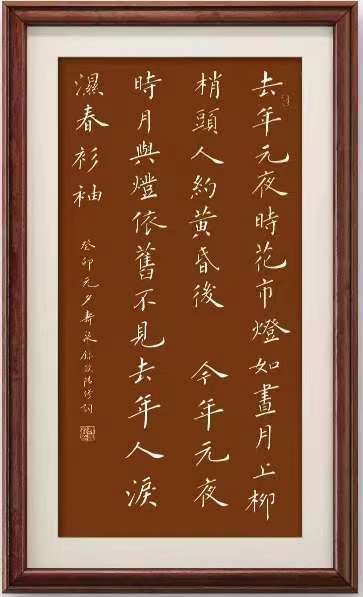 去年元夜時花市燈如晝月上柳
梢頭人約黃昏後 今年元夜
時月與燈依舊不見去年人淚
濕春衫袖
癸卯元夕壽泉錄歐陽修詞